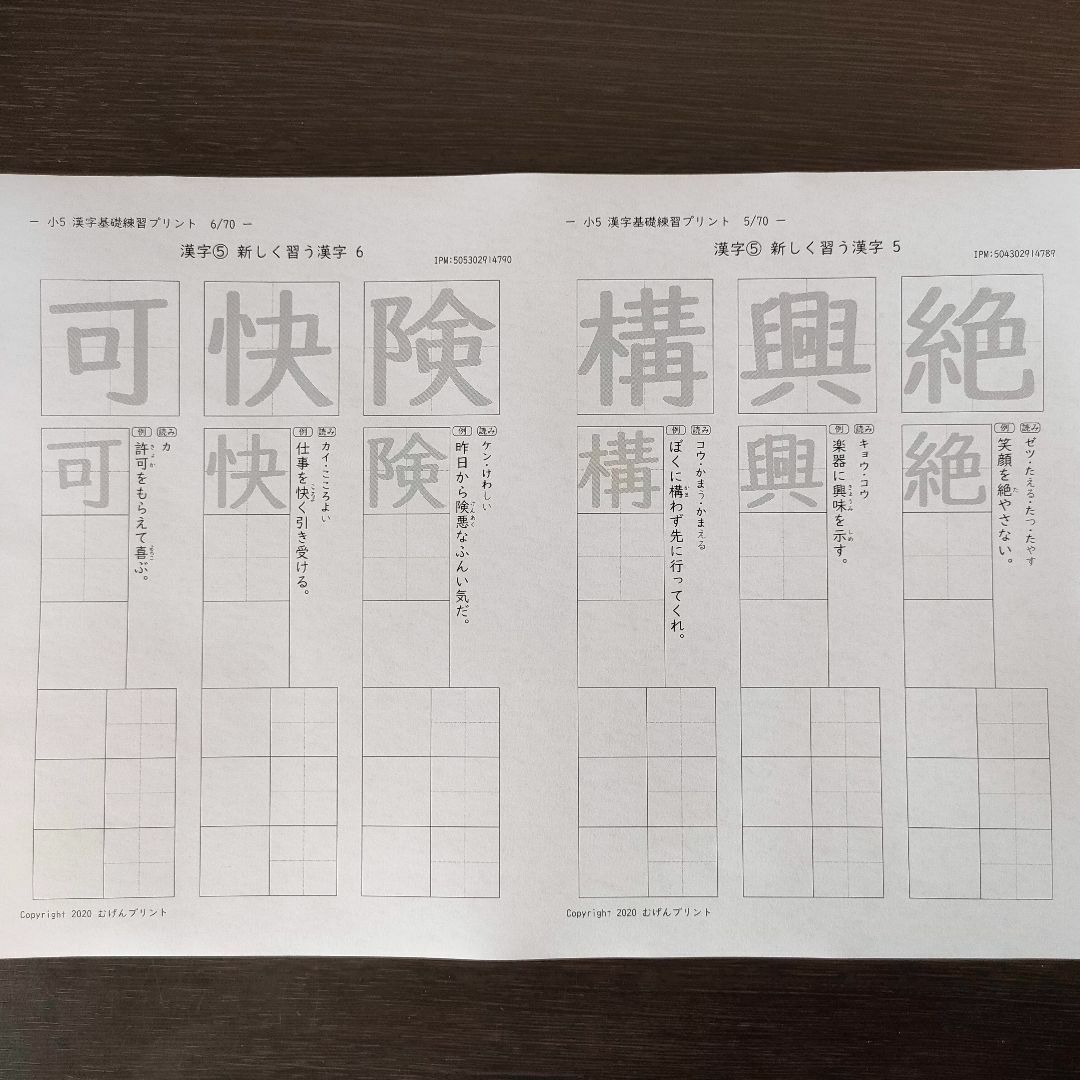 — 小5 漢字基礎練習プリント 5/70 —
漢字⑤ 新しく習う漢字 5
IPM:504302914789
絶
絶
読み
ゼツ・たえる・たつ・たやす
例
笑顔を絶やさない。
た
興
興
読み
キョウ・コウ
例
楽器に興味を示す。
きょうみ
しめ
構
構
読み
コウ・かまう・かまえる
例
ぼくに構わず先に行ってくれ。
かま
Copyright 2020 むげんプリント
— 小5 漢字基礎練習プリント 6/70 —
漢字⑤ 新しく習う漢字 6
IPM:505302914790
険
険
読み
ケン・けわしい
例
昨日から険悪なふんい気だ。
けんあく
快
快
読み
カイ・こころよい
例
仕事を快く引き受ける。
こころよ
可
可
読み
カ
例
許可をもらえて喜ぶ。
きょか
よろこ
Copyright 2020 むげんプリント